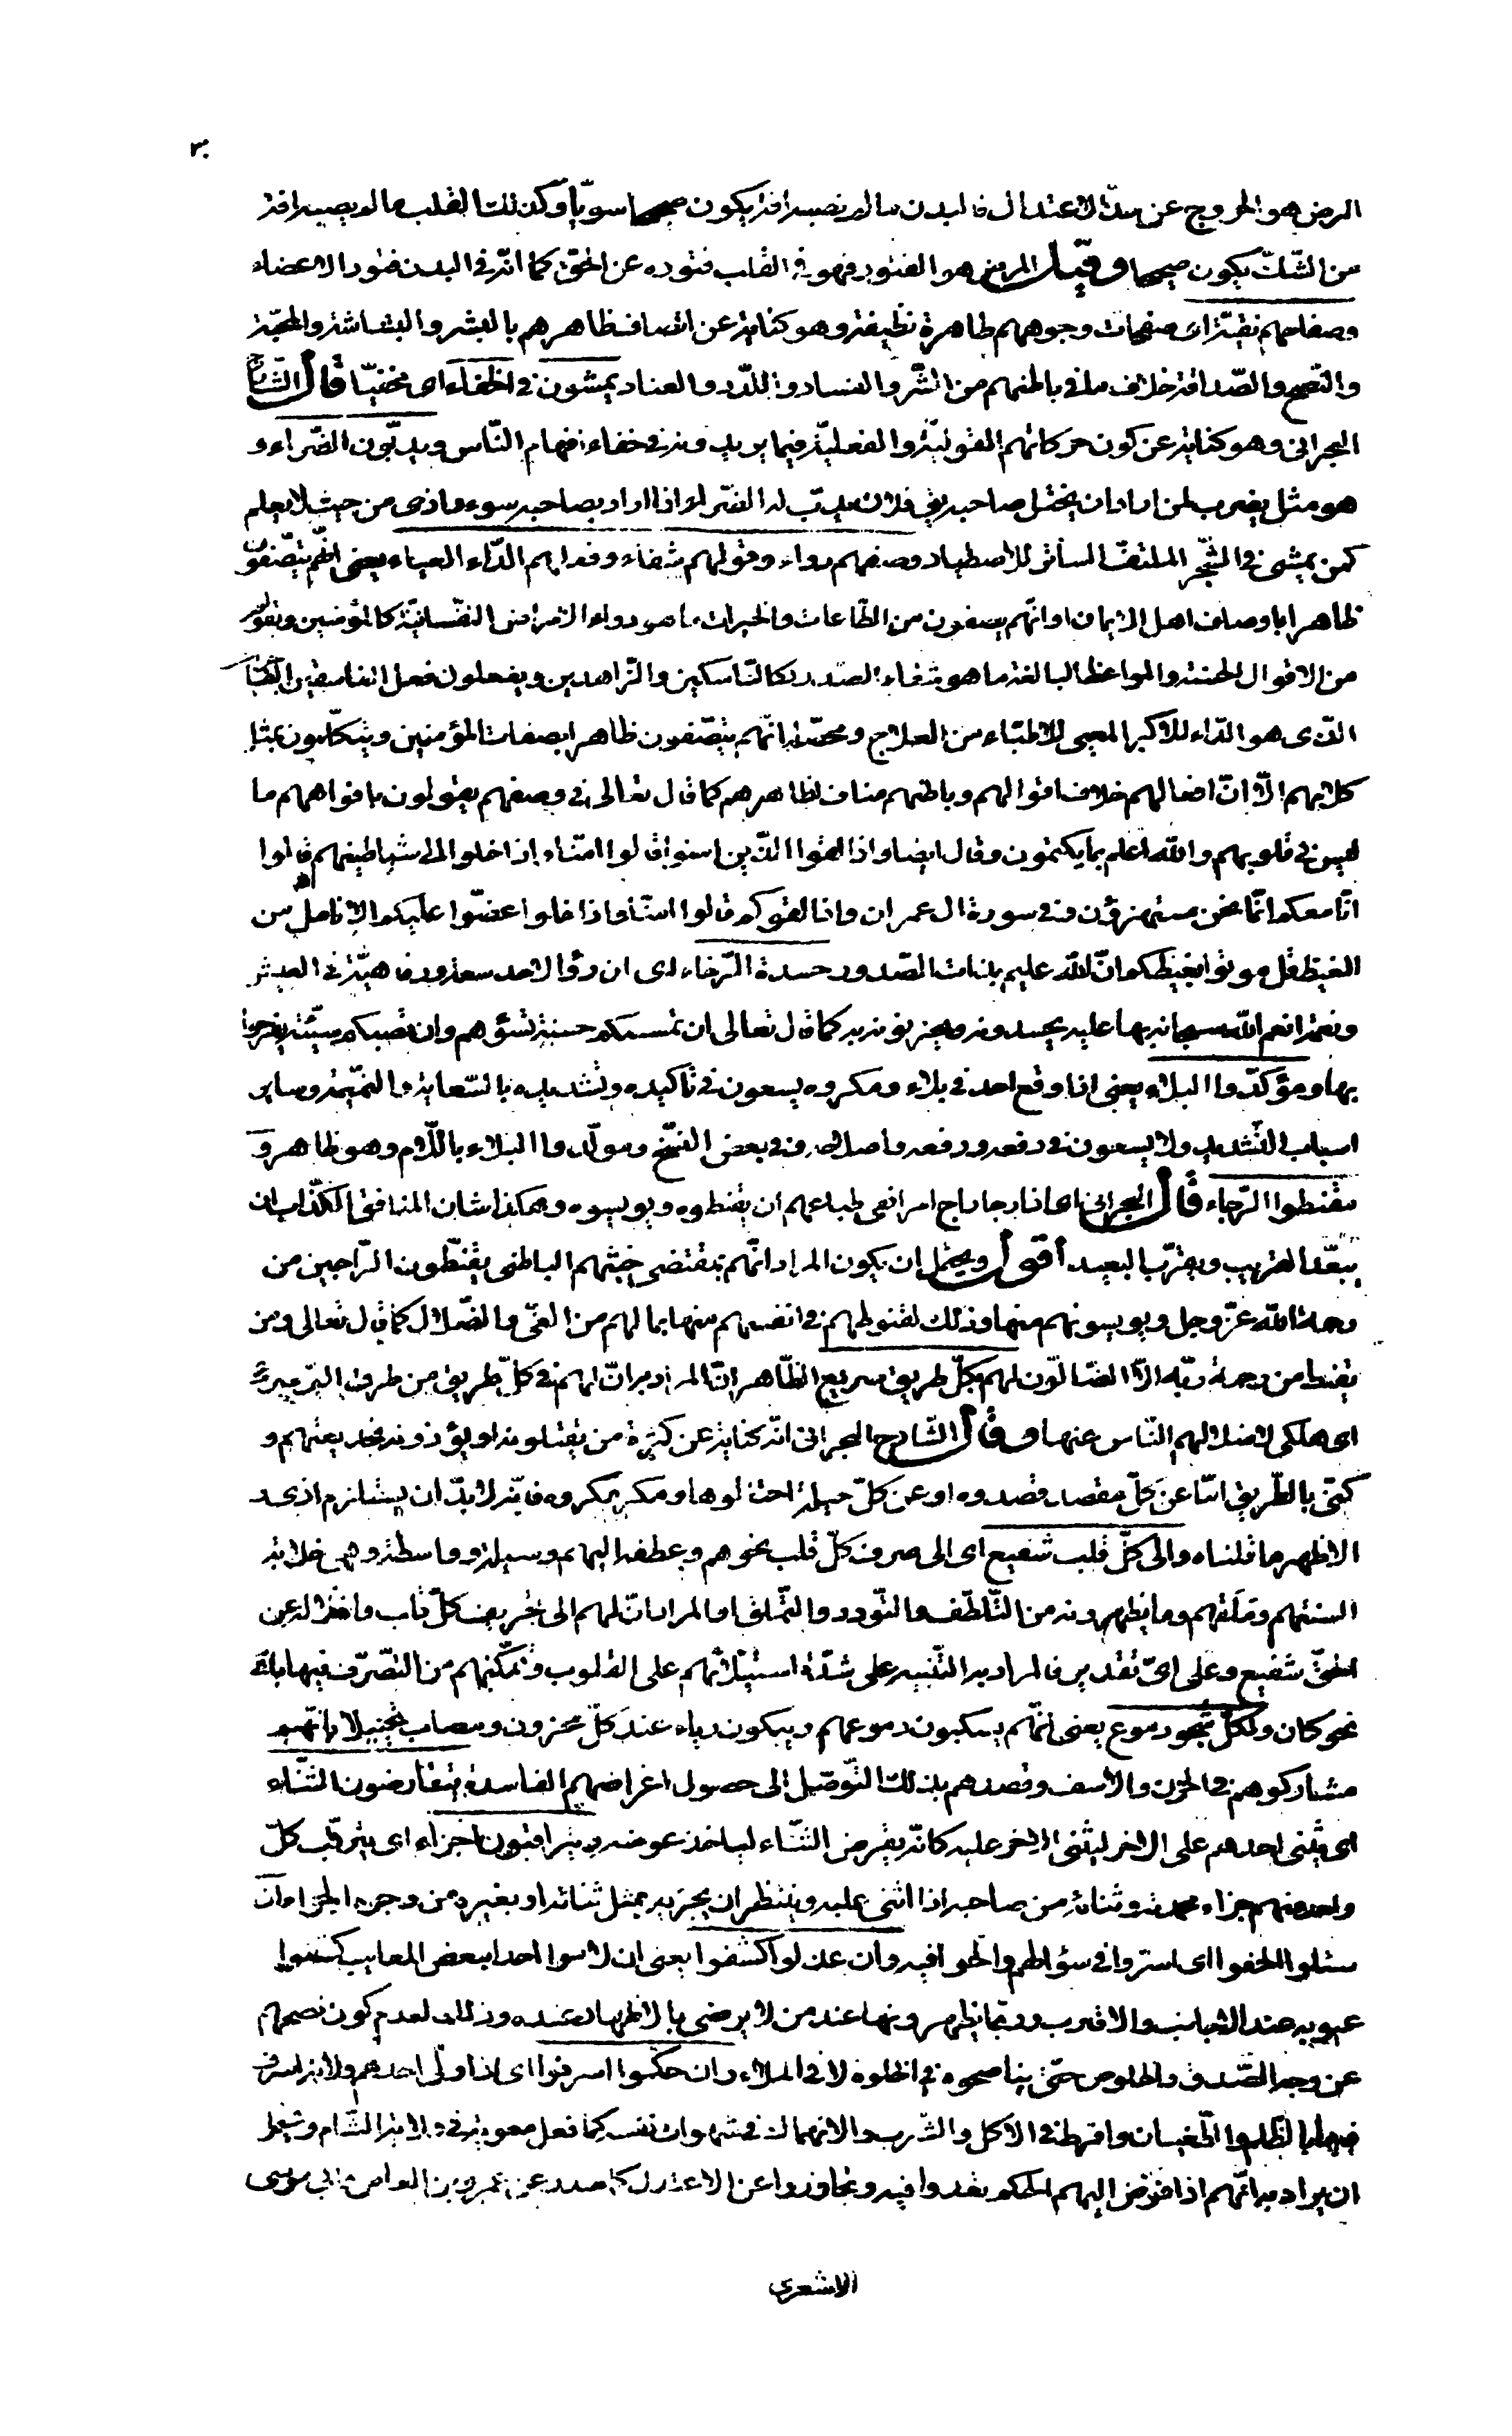 ٣٠
المرض هو الخروج عن حدّ الاعتدال فالبدن ما لم تصبه افة يكون صحيحا سويّا وكذلك القلب ما لم يصبه افة
من الشّك يكون صحيحا وقيل المرض هو الفتور فهو فى القلب فتوره عن الحقّ كما انّه فى البدن فتور الاعضاء
وصفاحهم نقيّة اى صفحات وجوههم طاهرة نظيفة وهو كناية عن اتصاف ظاهرهم بالبشر والبشاشة والمحبّة
والنّصح والصّداقة خلاف ما فى باطنهم من الشّر والفساد واللّدد والعناد يمشون فى الخفاء اى مختفيا قال الشّارح
البحرانى وهو كناية عن كون حركاتهم القوليّة والفعليّة فيما يريدونه فى خفاء افهام النّاس ويدبّون الضّراء و
هو مثل يضرب لمن اراد ان يختل صاحبه يق فلان يدبّ له الضّراء اذا اراد بصاحبه سوء واذى من حيث لا يعلم
كمن يمشى فى الشّجر الملتفّ الساتر للاصطياد وصفهم دواء وقولهم شفاء وفعلهم الدّاء العياء يعنى انّهم يتّصفون
ظاهرا باوصاف اهل الايمان او انّهم يصفون من الطّاعات والخيرات ما هو دواء الامراض النفّسانيّة كالمؤمنين ويقولون
من الاقوال الحسنة والمواعظ البالغة ما هو شفاء الصّدور كالنّاسكين والزّاهدين ويفعلون فعل الفاسقين
الذى هو الدّاء الاكبر المعيى للاطبّاء من العلاج ومحصّله انّهم يتّصفون ظاهرا بصفات المؤمنين ويتكلّمون بمثل
كلامهم الّا انّ افعالهم خلاف اقوالهم وباطنهم مناف لظاهرهم كما قال تعالى فى وصفهم يقولون بافواههم ما
ليس فى قلوبهم والله اعلم بما يكتمون وقال ايضا واذا لقوا الذّين امنوا قالوا امنّا واذا خلوا الى شياطينهم قالوا
انّا معكم انّما نحن مستهزؤن وفى سورة ال عمران واذا لقوكم قالوا امنّا واذا خلوا عضّوا عليكم الانامل من
الغيظ قل موتوا بغيظكم انّ الله عليم بذات الصّدور حسدة الرّخاء اى ان رؤا لاحد سعة ورفاهيّة فى العيش
ونعمة انعم الله سبحانه بها عليه يحسدونه ويحزنون به كما قال تعالى ان تمسسكم حسنة تسؤهم وان تصبكم سيّئة يفرحوا
بها ومؤكّدوا البلاء يعنى اذا وقع احد فى بلاء ومكروه يسعون فى تاكيده وتشديده بالسّعاية والنّميمة وساير
اسباب التّشديد ولا يسعون فى دفعه ورفعه واصلاحه وفى بعض النّسخ ومولّدوا البلاء باللّام وهو ظاهر و
مقنطوا الرّجاء قال البحرانى اى اذا رجا راج امرا ففى طباعهم ان يقنطوه ويويسوه وهكذا شان المنافق الكذّاب ان
يبعّد القريب ويقرّب البعيد أقول ويحتمل ان يكون المراد انّهم بمقتضى خبثهم الباطنى يقنّطون الرّاجين من
رحمة الله عزّ وجل ويويسونهم منها وذلك لقنوطهم فى انفسهم منها بما لهم من الغىّ والضّلال كما قال تعالى ومن
يقنط من رحمة ربّه الّا الضّالّون لهم بكلّ طريق صريع الظّاهر انّ المراد به انّ لهم فى كلّ طريق من طرق البرّ صرعى
اى هلكى لاضلالهم النّاس عنها وقال الشّارح البحرانى انّه كناية عن كثرة من يقتلونه او يؤذونه بخديعتهم و
كنّى بالطّريق امّا عن كلّ مقصد قصدوه او عن كلّ حيلة احتالوها ومكر مكروه فانّه لا بدّ ان يستلزم اذى
الاظهر ما قلناه والى كلّ قلب شفيع اى الى صرف كلّ قلب نحوهم وعطفه اليهم وسيلة وواسطة وهى خلابة
السنتهم وتملّقهم وما يظهرونه من التّلطّف والتّودد والتّملّق او المراد انّ لهم الى تحريف كلّ قلب وازالته عن
الحقّ شفيع وعلى اىّ تقدير فالمراد به التّنبيه على شدّة استيلائهم على القلوب وتمكّنهم من التّصرّف فيها باىّ
نحو كان ولكلّ شجو دموع يعنى انّهم يسكبون دموعهم ويبكون رياء عند كلّ محزون ومصاب تخييلا بانّهم
مشاركوهم فى الحزن والاسف وقصدهم بذلك التّوصّل الى حصول اغراضهم الفاسدة يتقارضون الثّناء
اى يثنى احدهم على الاخر ليثنى الاخر عليه كانّه يقرض الثّناء لياخذ عوضه ويتراقبون الجزاء اى يترقّب كلّ
واحد منهم جزاء محمدته وثنائه من صاحبه اذا اثنى عليه وينتظر ان يجزيه بمثل ثنائه او بغيره من وجوه الجزاء ان
سئلوا الحفوا اى اسرفوا فى سؤالهم والحّوا فيه وان عذلوا كشفوا يعنى ان لاموا احدا ببعض المعايب كشفوا
عيوبه عند الاجانب والاقارب وربّما يظهرونها عند من لا يرضى بالاظهار عنده وذلك لعدم كون نصحهم
عن وجه الصّدق والخلوص حتّى يناصحوه فى الخلوة لا فى الملاء وان حكموا اسرفوا اى اذا ولّى احدهم ولاية اسرف
فيها بالظّلم والطّغيان وافرط فى الاكل والشّرب والانهماك فى شهوات نفسه كما فعل معوية فى ولاية الشّام ويحتمل
ان يراد به انّهم اذا فوّض اليهم الحكم تعدوا فيه وتجاوزوا عن الاعتدال كما صدر عن عمرو بن العاص وابى موسى
الاشعرى